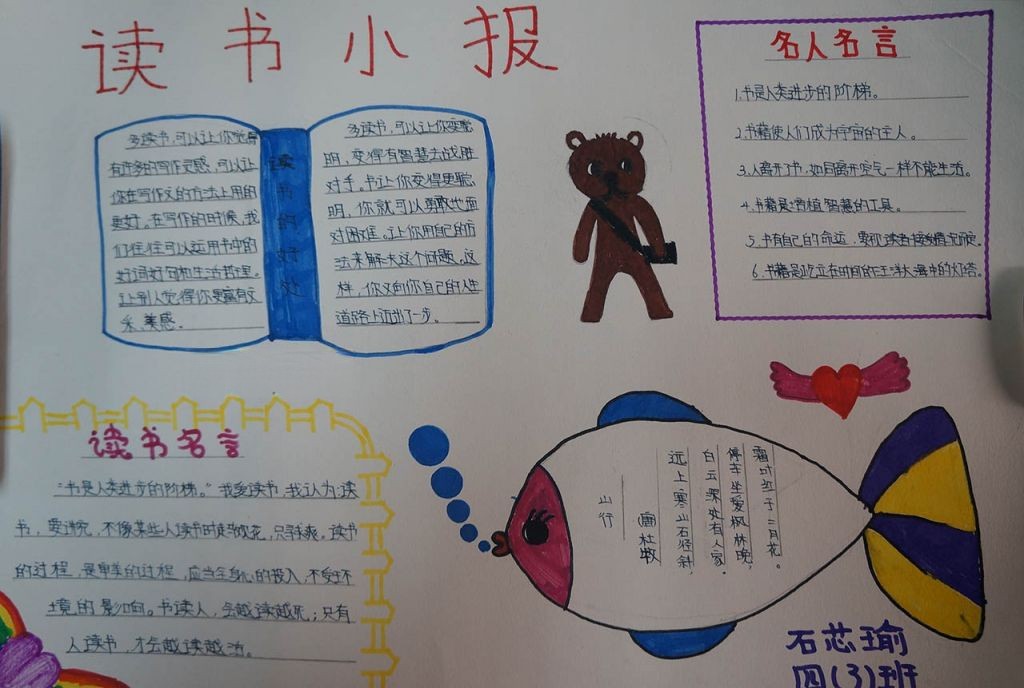 读书小报
名人名言
1.书是人类进步的阶梯。
2.书籍使人们成为宇宙的主人。
3.人离开了书,如同离开空气一样不能生活。
4.书籍是培植智慧的工具。
5.书有自己的命运,要视读者接纳情况而定。
6.书籍是屹立在时间的汪洋大海中的灯塔。
读书的好处
多读书,可以让你觉得
有许多的写作灵感,可以让
你在写作文的方法上用的
更好。在写作的时候,我
们往往可以运用书中的
好词好句和生活哲理。
让别人觉得你更富有文
采、美感。
多读书,可以让你变聪
明,变得有智慧去战胜
对手。书让你变得更聪
明,你就可以勇敢地面
对困难。让你用自己的方
法来解决这个问题。这
样,你又向你自己的人生
道路上迈出了一步。
读书名言
“书是人类进步的阶梯。”我爱读书,我认为:读
书,要讲究,不像某些人读书时走马观花,只寻求爽。读书
的过程,是审美的过程,应当全身心的投入,不受环
境的影响。书读人,会越读越死;只有
人读书,才会越读越活。
山行
唐杜牧
远上寒山石径斜,
白云深处有人家。
停车坐爱枫林晚,
霜叶红于二月花。
石芯瑜
四(3)班